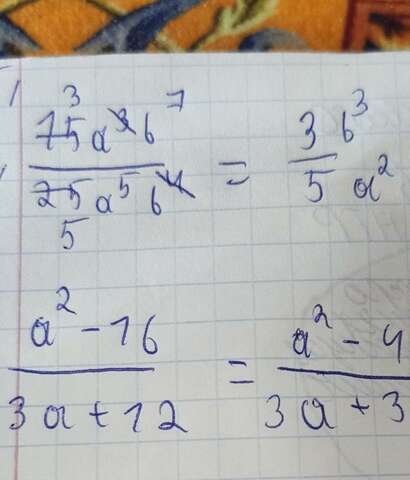 3
15a³b⁷ / 25a⁵b⁴ = 3b³ / 5a²
5
a² - 16 / 3a + 12 = a² - 4 / 3a + 3